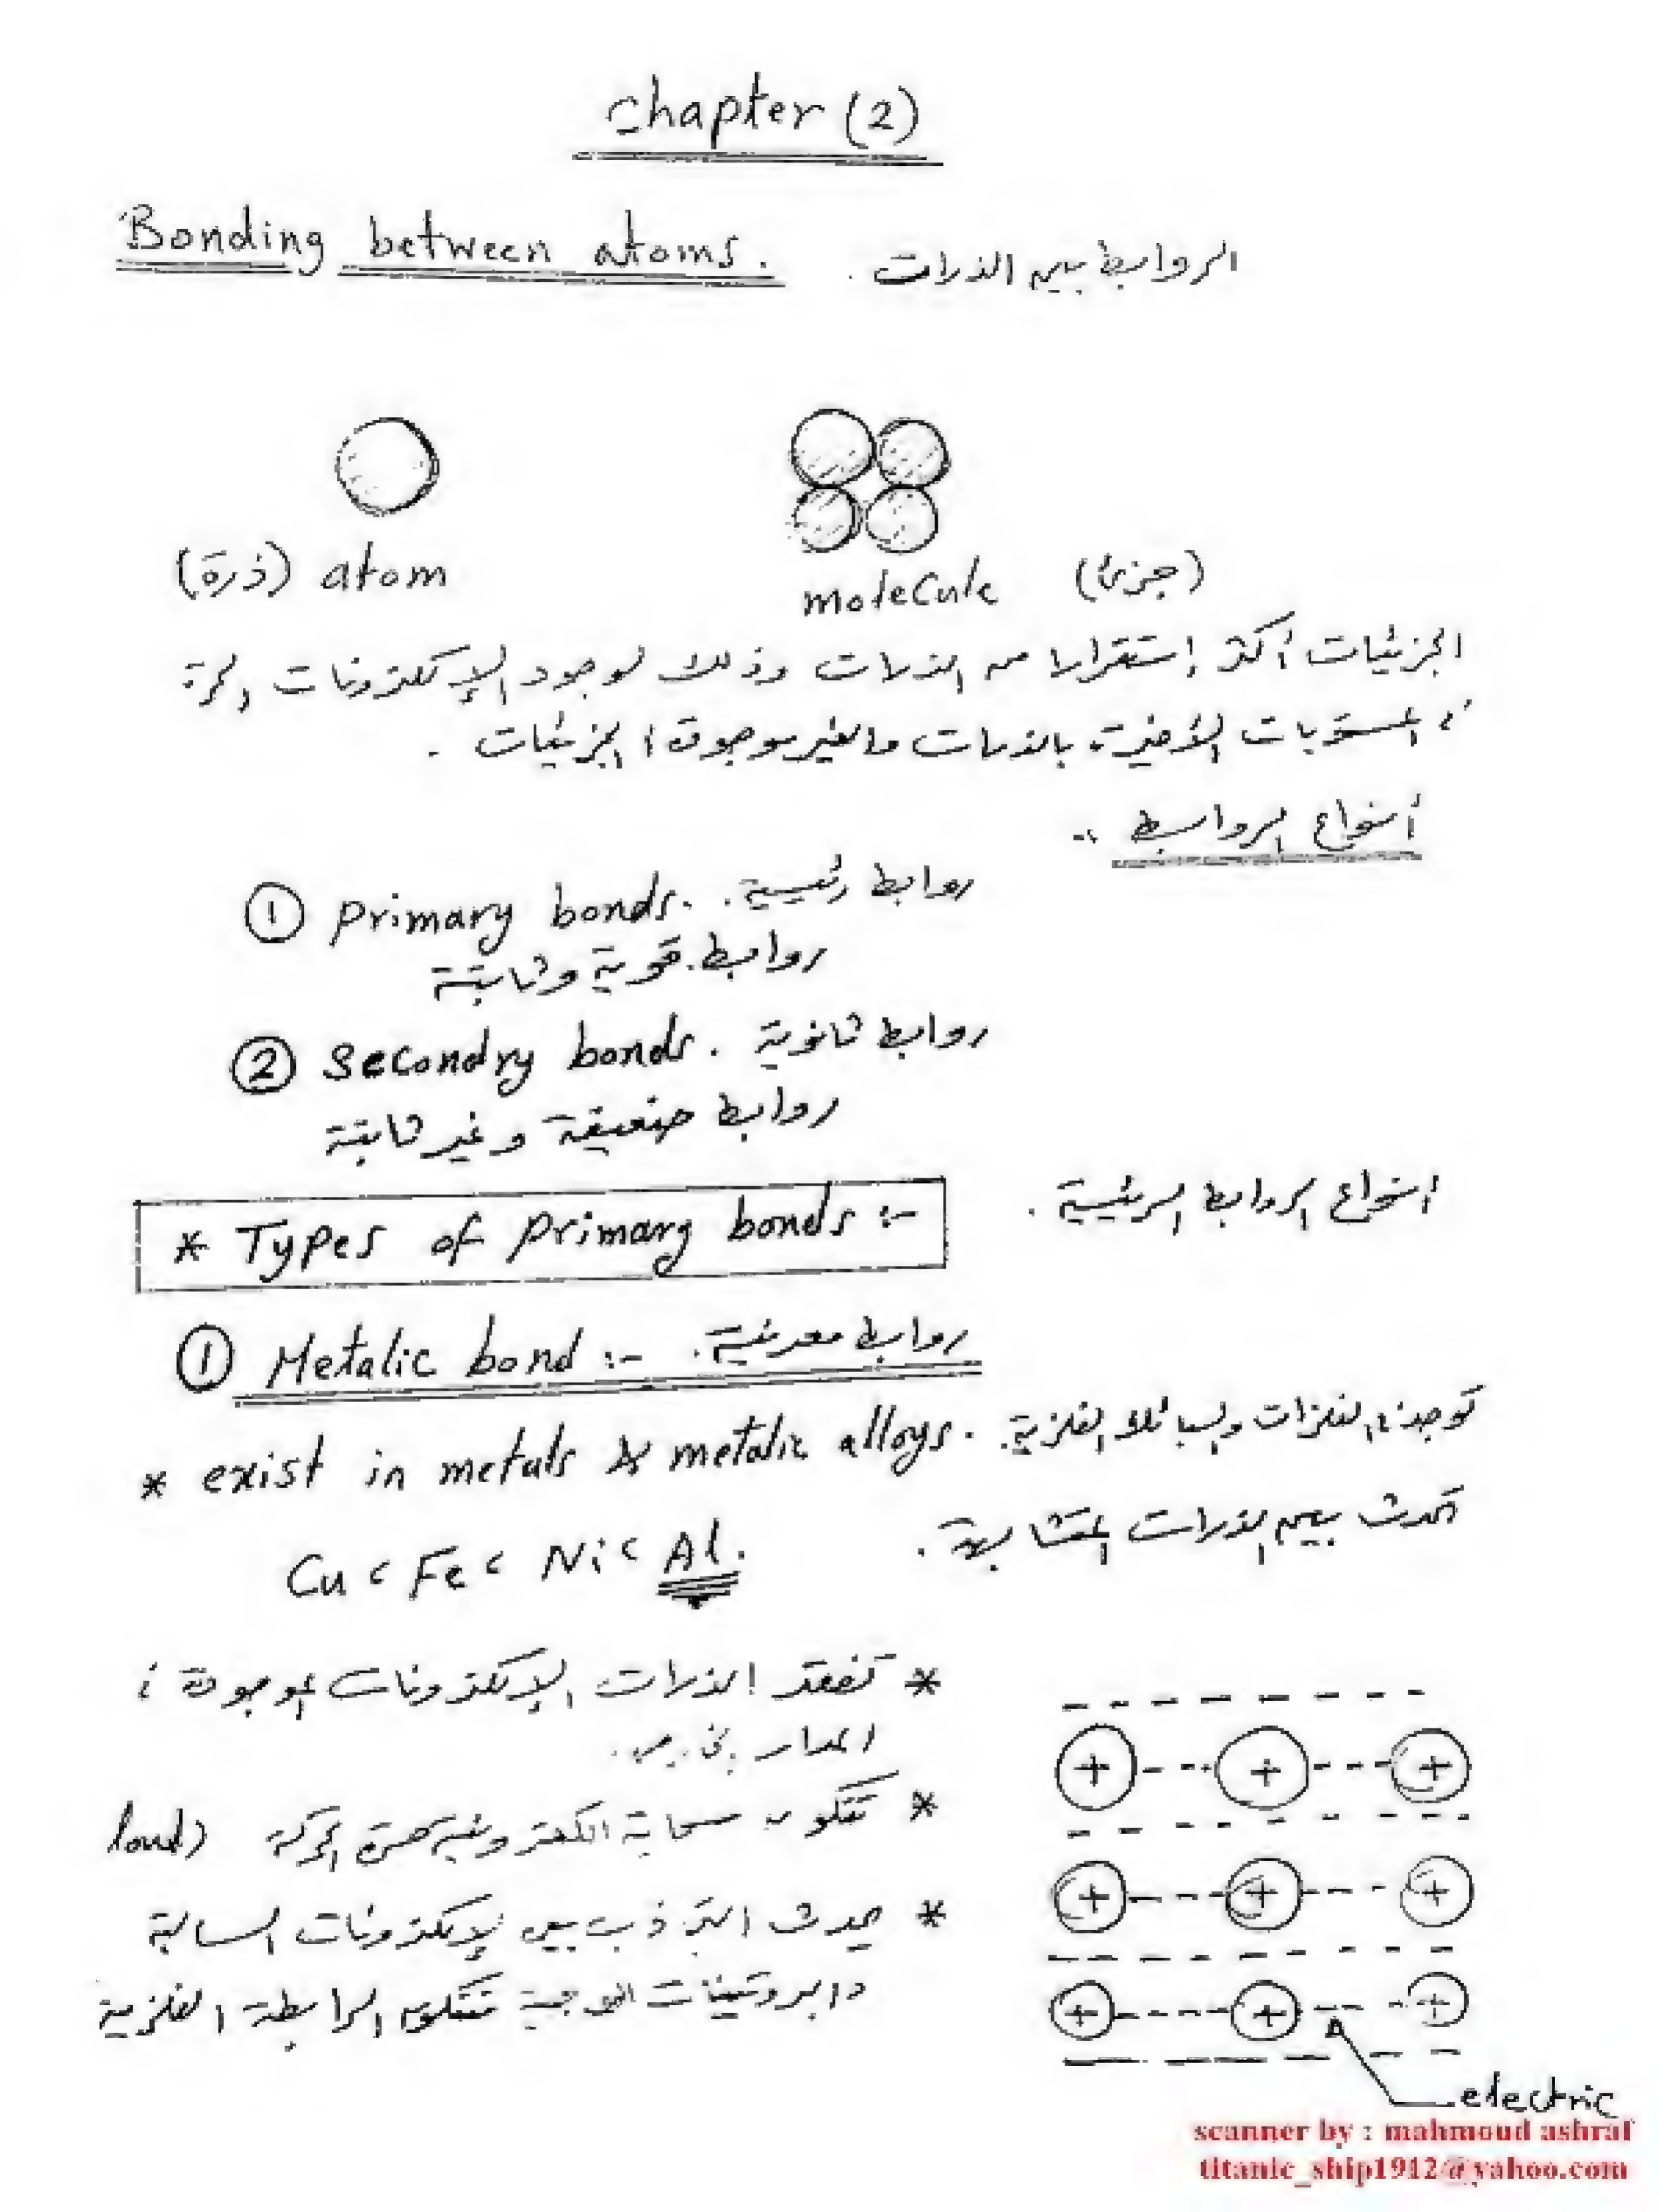 chapter (2)
Bonding between atoms. الروابط بين الذرات .
(ذرة) atom
molecule (جزئ)
الجزئيات أكثر إستقرارا من الذرات وذلك لوجود الإلكترونات الحرة
المستويات الأخيرة بالذرات والغير موجودة الجزئيات .
أنواع الروابط :-
① primary bonds. روابط رئيسية .
روابط قوية وثابتة
② secondry bonds. روابط ثانوية
روابط ضعيفة وغير ثابتة
* Types of primary bonds :- أنواع الروابط الرئيسية .
① Metalic bond :- روابط معدنية .
* exist in metals & metalic alloys. توجد الفلزات والسبائك الفلزية .
Cu < Fe < Ni < Al. تحدث بين الذرات المتشابهة .
* تفقد الذرات الإلكترونات الموجودة
المدار
* تتكون سحابة الكترونية الحركة (loud
* يحدث التجاذب بين الإلكترونات السالبة
والبروتينات الموجبة تتكون الرابطة الفلزية
+ + +
+ + +
+ + +
electric
scanner by : mahmoud ashraf
titanic_ship1912@yahoo.com